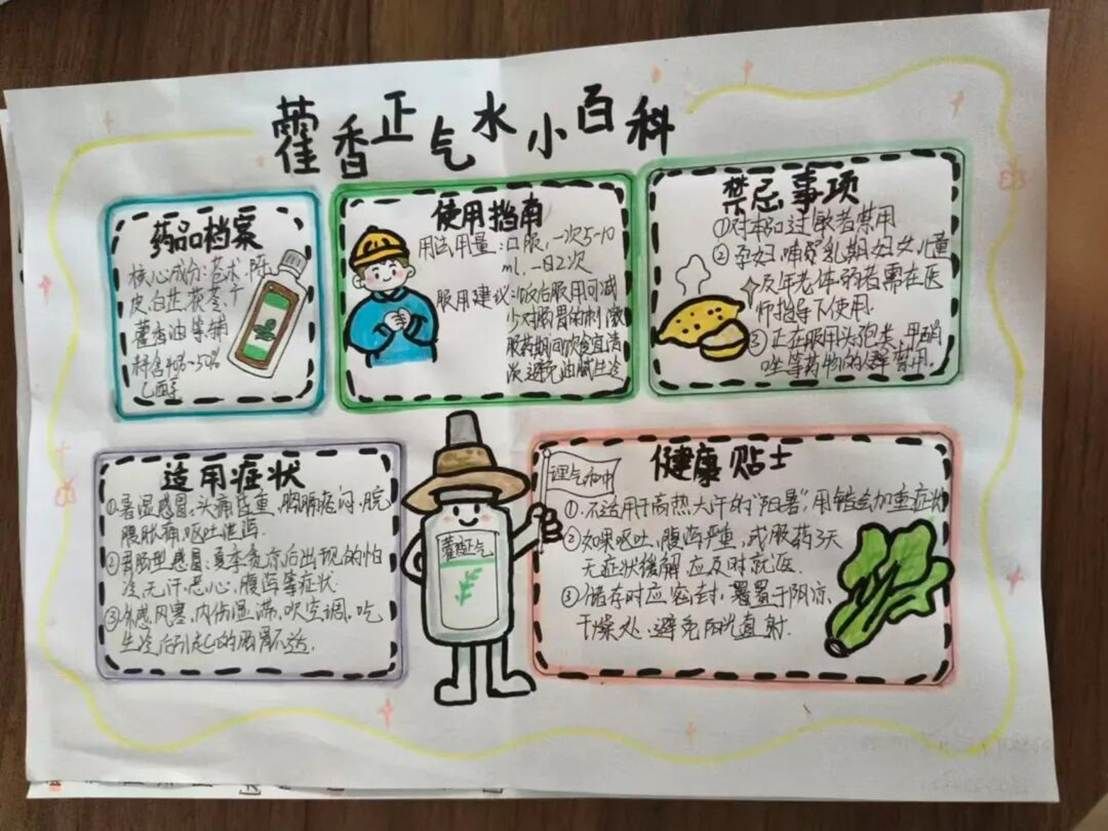 藿香正气水小百科
药品档案
核心成分:苍术、陈
皮、白芷、茯苓、干
藿香油等辅
料含40%~50%
乙醇
使用指南
用法用量:口服,一次5-10
ml,一日2次
服用建议:饭后服用可减
少对肠胃的刺激
服药期间饮食宜清
淡,避免油腻生冷
禁忌事项
①对本品过敏者禁用
②孕妇,哺乳期妇女儿童
及年老体弱者需在医
师指导下使用.
③正在服用头孢类、甲硝
唑等药物的禁用.
适用症状
①暑湿感冒,头痛昏重,胸膈痞闷,脘
腹胀痛呕吐泄泻.
②胃肠型感冒:夏季贪凉后出现的怕
冷、无汗、恶心,腹泻等症状.
③外感风寒,内伤湿滞,吹空调、吃
生冷后引起的肠胃不适.
藿香正气
理气和中
健康贴士
①.不适用于高热大汗的“阳暑”,用错会加重症状
②如果呕吐,腹泻严重,或服药3天
无症状缓解 应及时就医.
③储存时应密封,置于阴凉,
干燥处.避免阳光直射.